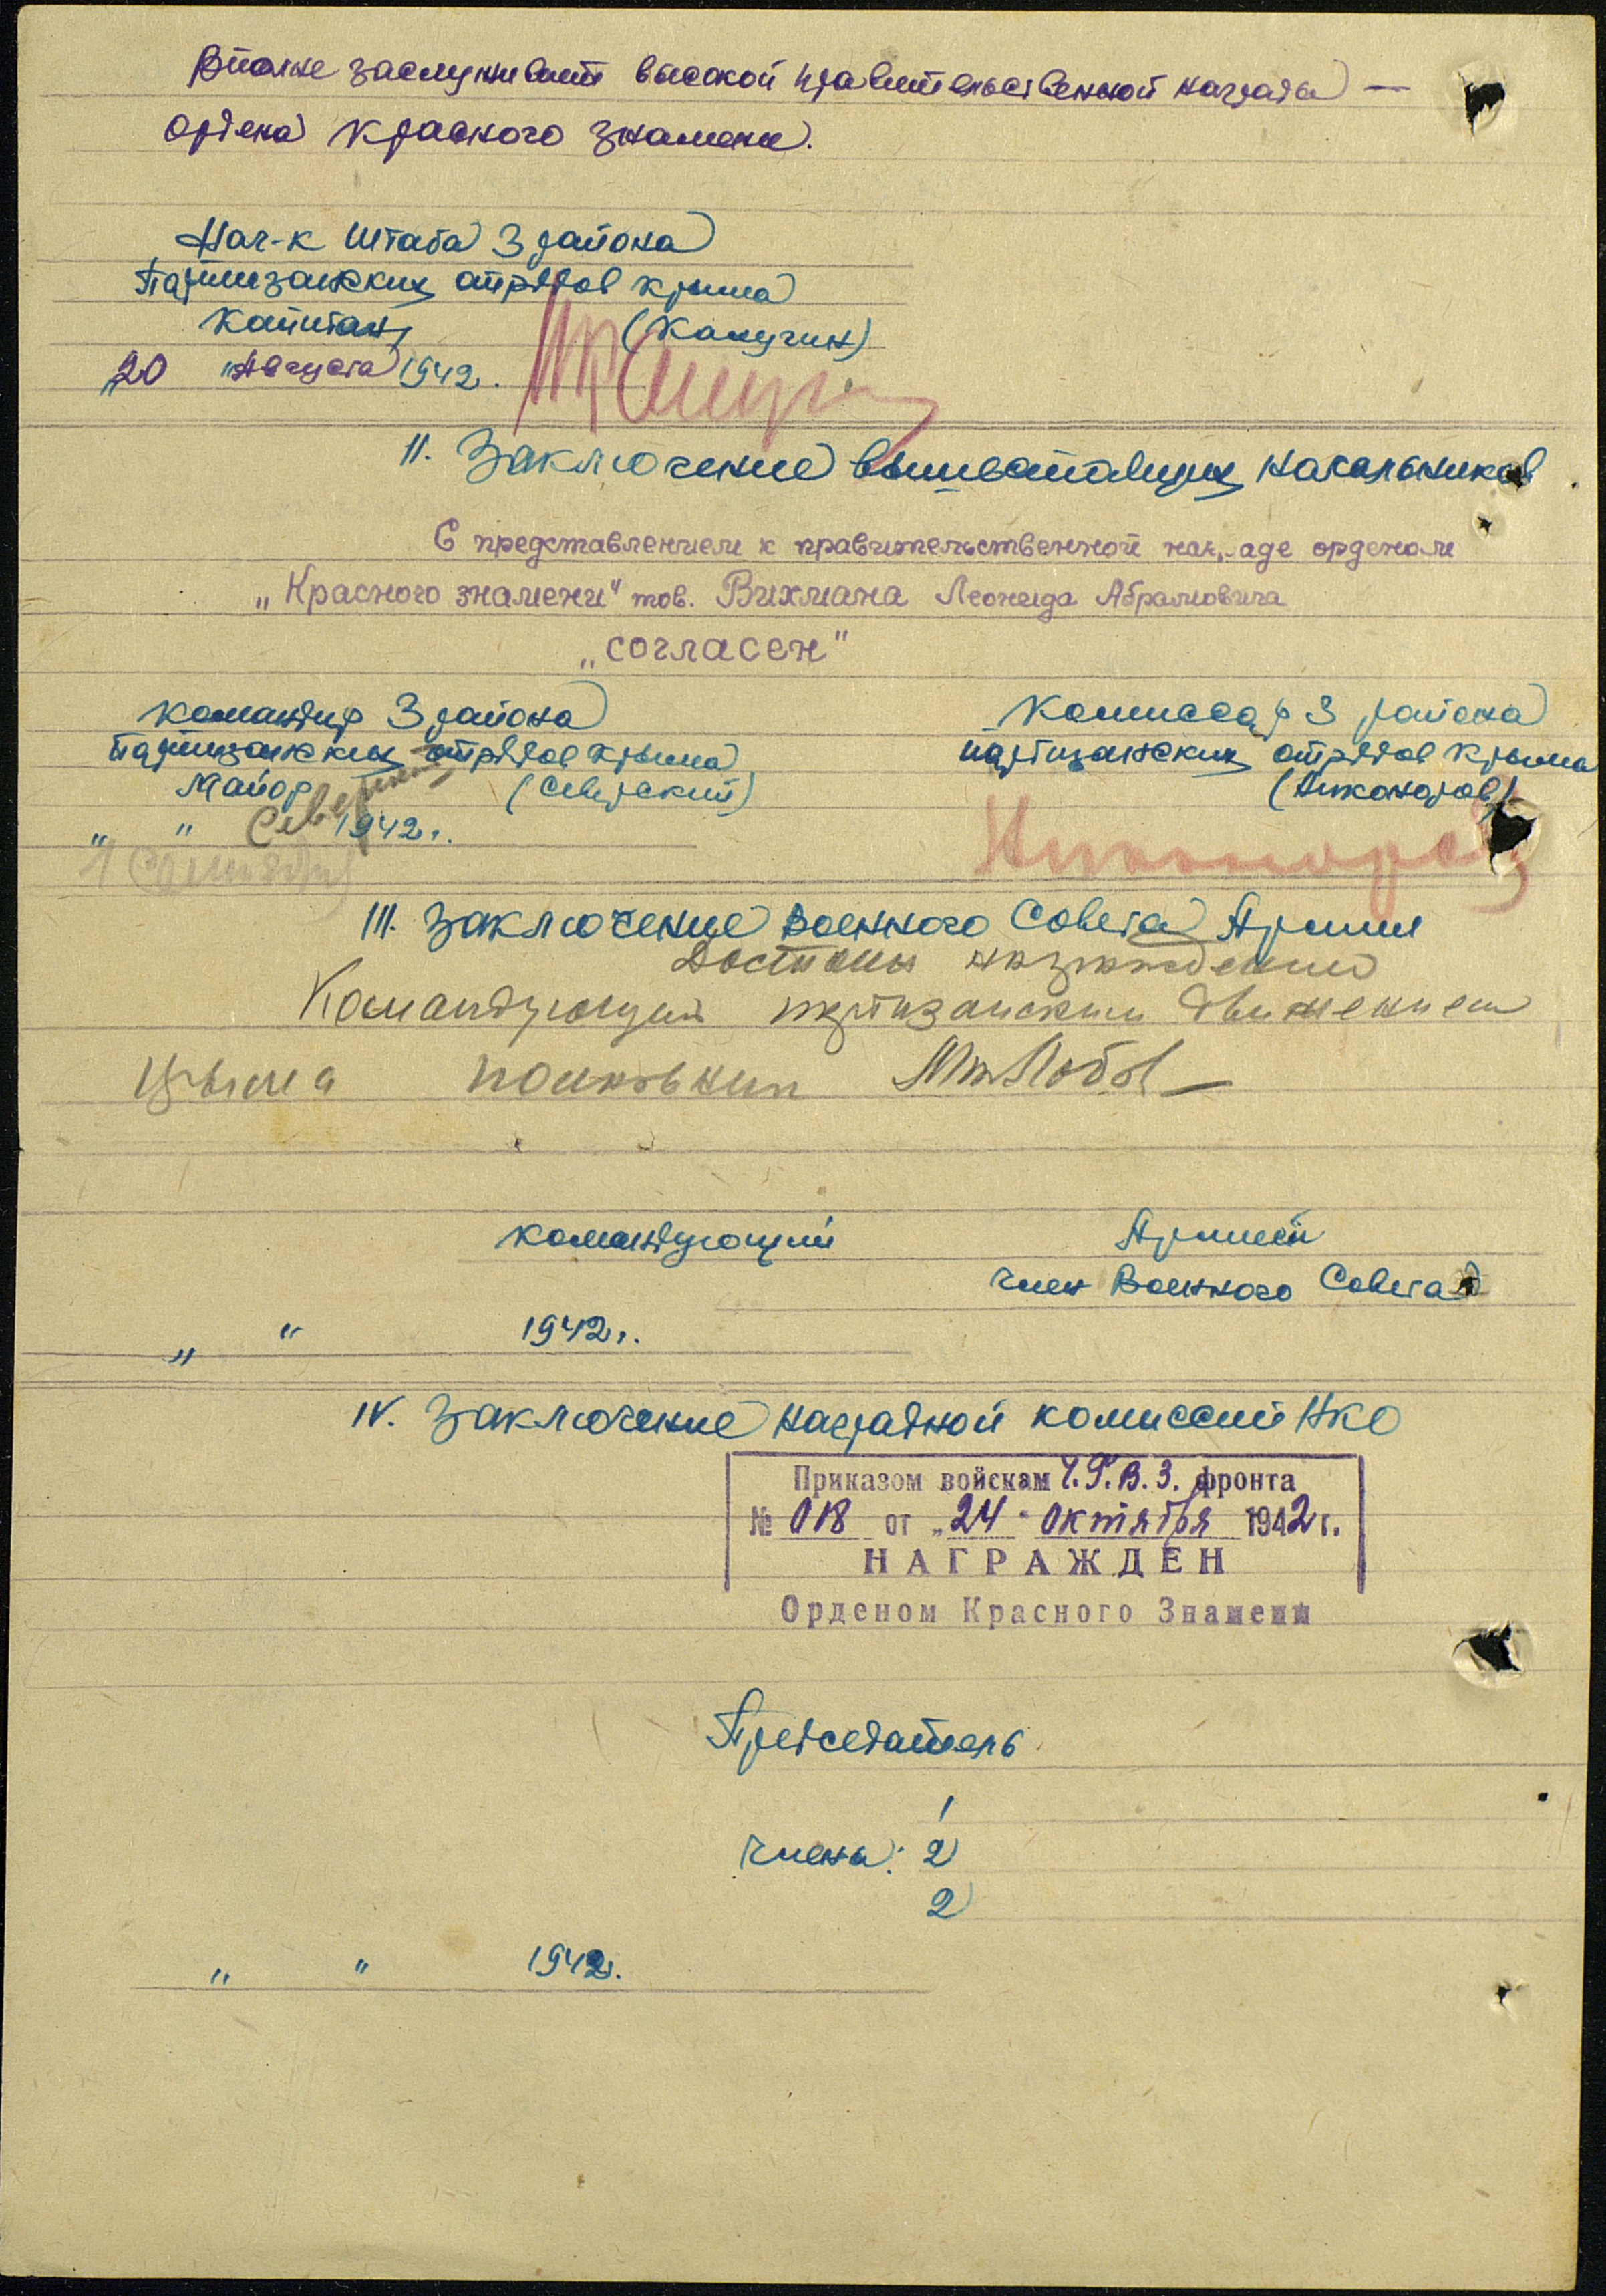 Вполне заслуживает высокой правительственной награды —
ордена Красного знамени.
Нач-к Штаба 3 района
Партизанских отрядов Крыма
Капитан (Калугин)
"20" Августа 1942.
II. Заключение вышестоящих начальников.
С представлением к правительственной награде орденом
„Красного знамени" тов. Вихмана Леонида Абрамовича
„согласен"
Командир 3 района
Партизанских отрядов Крыма
Майор (Северский)
Северский
„ " 1942г.
1 Сентября
Комиссар 3 района
партизанских отрядов Крыма
(Никаноров)
Никаноров
III. Заключение Военного Совета Армии
Достоин награждения
Командующий партизанским движением
Крыма полковник Лобов
Командующий Армией
Член Военного Совета
„ " 1942г.
IV. Заключение наградной комиссии НКО
Приказом войскам Ч.Г.В.З. фронта
№ 018 от „24" октября 1942 г.
НАГРАЖДЕН
Орденом Красного Знамени
Председатель
1
Члены: 2
2
„ " 1942г.